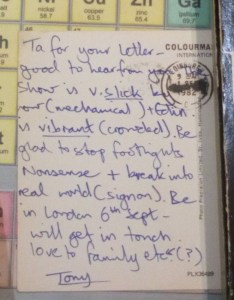 Zn Ga
copper
63.5 65.4
Ta for your letter -
COLOURMA
good to hear from you
Show is v. slick
(mechanical) + Edin
is vibrant (crowded). Be
glad to stop footlights
Nonsense + break into
real world (signon). Be
in London 6th Sept -
will get in touch.
love to family etc (?)
Tony